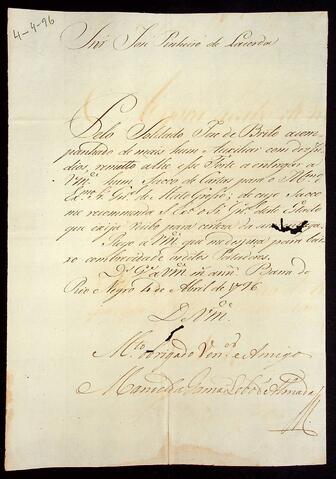 4-4-96
Snr. Joze Pinheiro de Lacerda
Pelo Soldado Joze de Brito acom
panhado de mais hum Auxiliar com dez In
dios, remetto a esse Forte a entregar a
Vmce. hum Sacco de Cartas para o
Exmo. Sr. Genal. de Matto Grosso; de cujo Sacco
me recommenda S. Exa. o Sr. Genal. deste Estado
que exija recibo para certeza da sua entrega.
Rogo a Vmce. que
commodidade
Ds. Gde. a Vmce. m. ann. Barra do
Rio Negro 4 de Abril de 1796
De Vmce.
Mto. obrigado Venor. e Amigo
Manoel da Gama Lobo de Almada